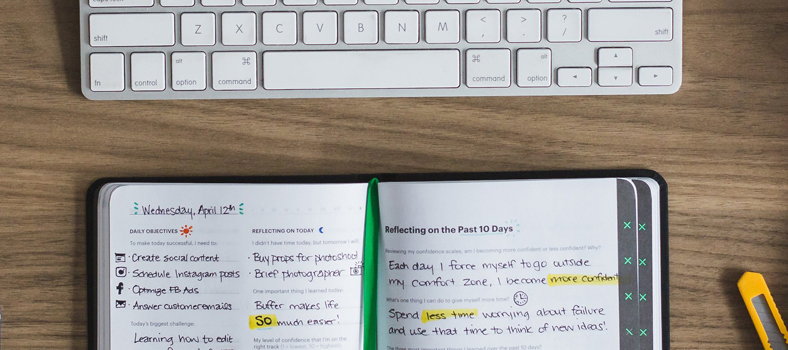 shift
Z
X
C
V
B
N
M
<
,
>
.
?
/
shift
fn
control
alt
option
⌘
command
⌘
command
alt
option
Wednesday, April 12th
DAILY OBJECTIVES
To make today successful, I need to:
· Create social content
· Schedule Instagram posts
· Optimize FB Ads
· Answer customer emails
Today's biggest challenge:
Learning how to edit
REFLECTING ON TODAY
I didn't have time today, but tomorrow I will:
· Buy props for photoshoot
· Brief photographer
One important thing I learned today:
Buffer makes life
SO much easier!
My level of confidence that I'm on the
right track
Reflecting on the Past 10 Days
Reviewing my confidence scales, am I becoming more confident or less confident? Why?
Each day I force myself to go outside
my comfort zone, I become more confident
What's one thing I can do to give myself more time?
Spend less time worrying about failure
and use that time to think of new ideas!